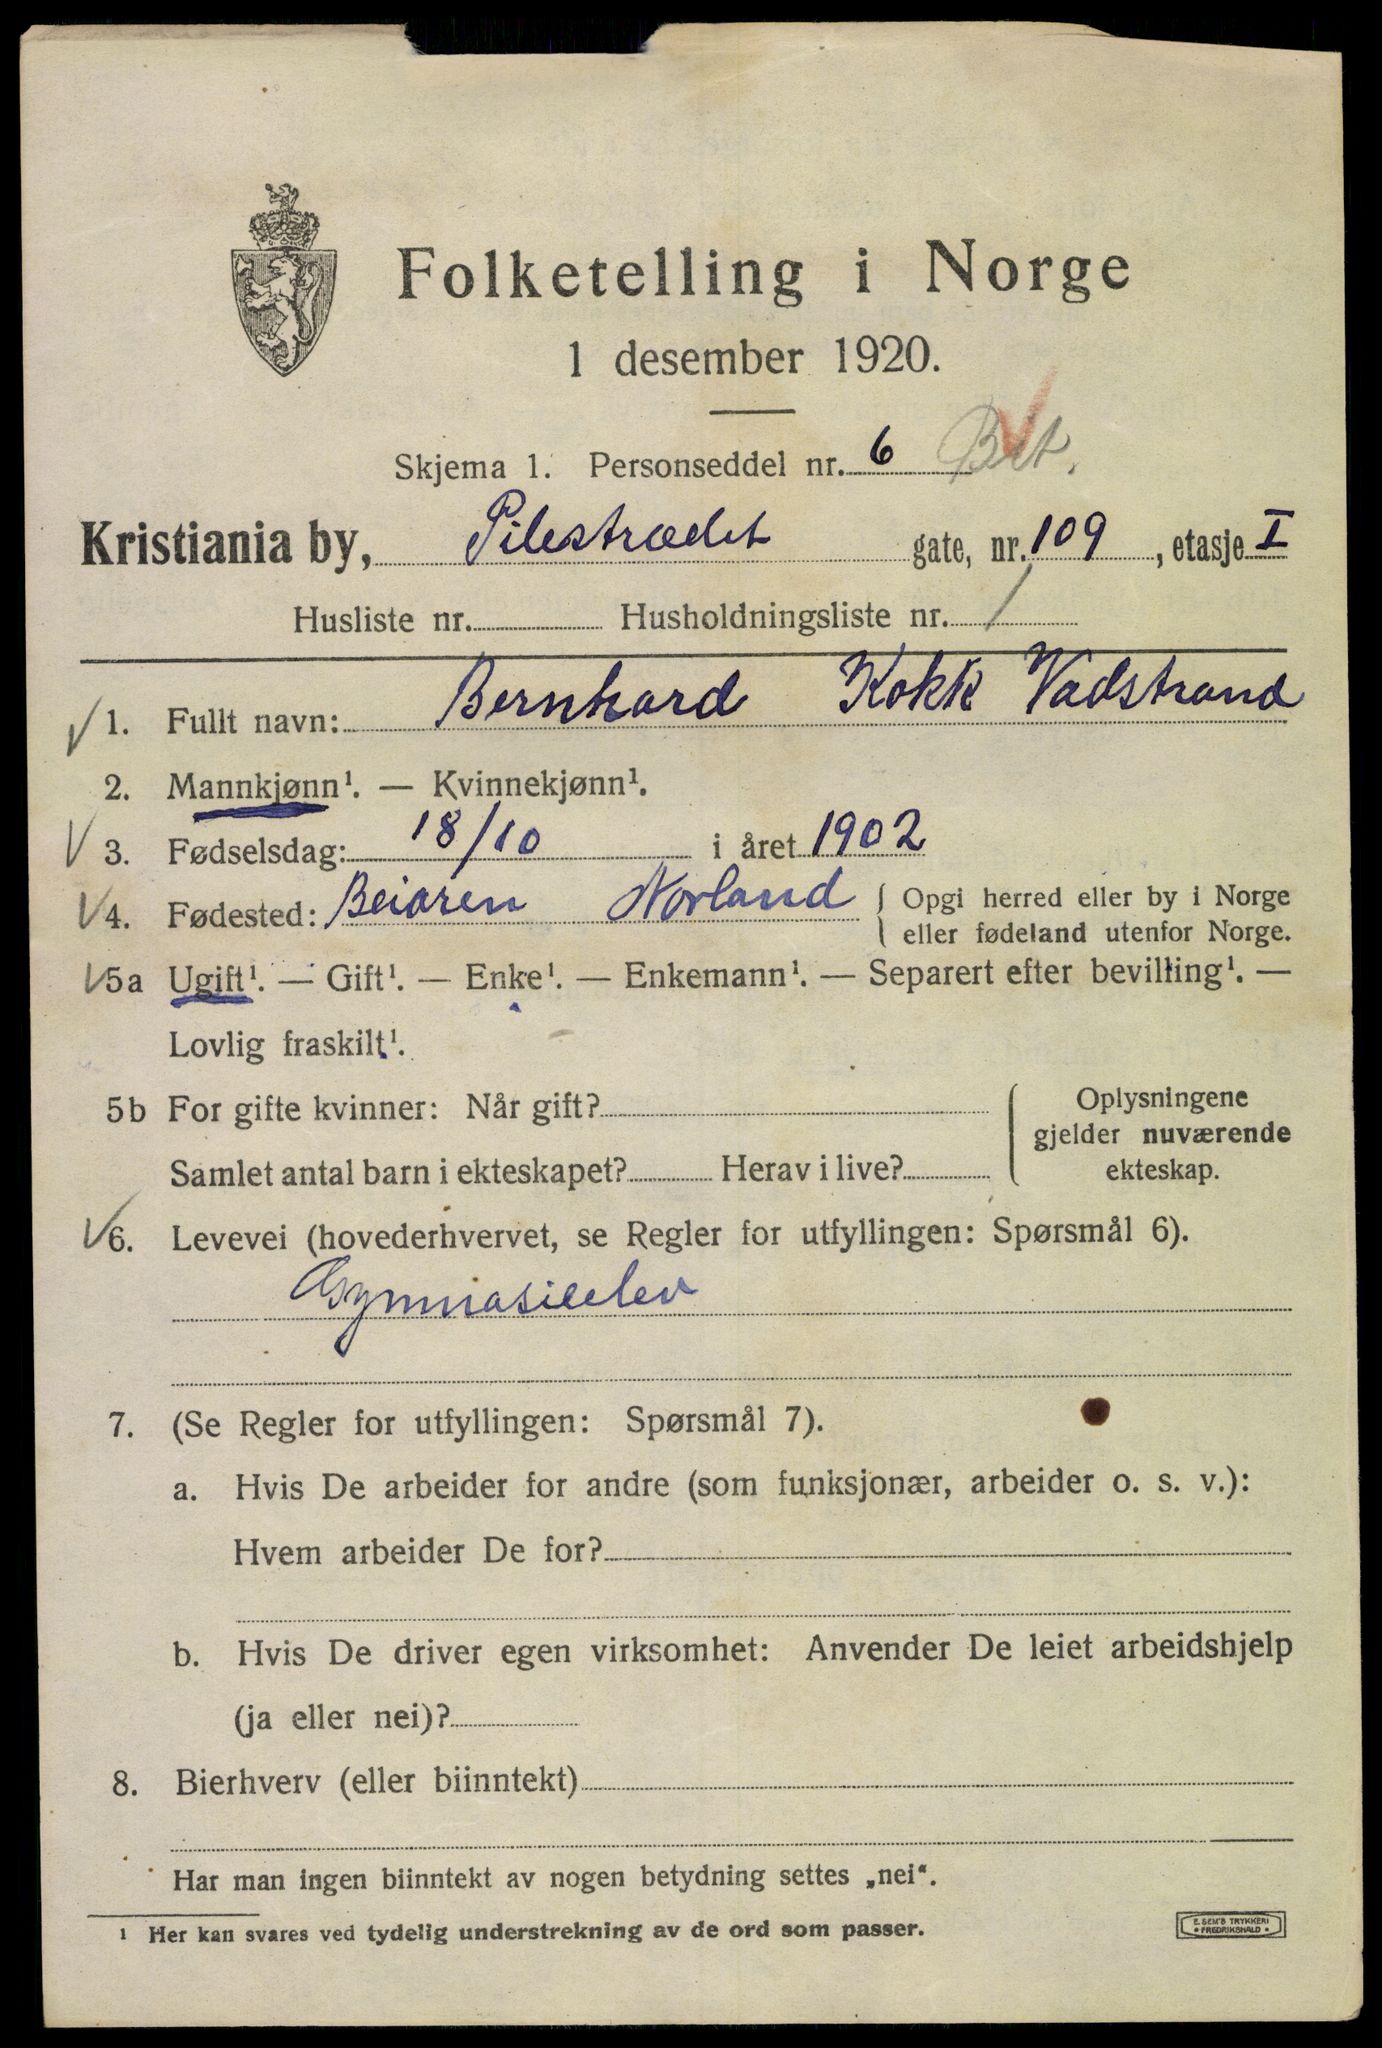 Folketelling i Norge
1 desember 1920.
Skjema 1. Personseddel nr. 6
Kristiania by, Pilestrædet gate, nr. 109, etasje I
Husliste nr. Husholdningsliste nr. 1
1. Fullt navn: Bernhard Kokk Vadstrand
2. Mannkjønn¹. — Kvinnekjønn¹.
3. Fødselsdag: 18/10 i året 1902
4. Fødested: Beiaren Norland { Opgi herred eller by i Norge
eller fødeland utenfor Norge.
5a Ugift¹. — Gift¹. — Enke¹. — Enkemann¹. — Separert efter bevilling¹. —
Lovlig fraskilt¹.
5b For gifte kvinner: Når gift?
Samlet antal barn i ekteskapet? Herav i live?
Oplysningene
gjelder nuværende
ekteskap.
6. Levevei (hovederhvervet, se Regler for utfyllingen: Spørsmål 6).
Gymnasieelev
7. (Se Regler for utfyllingen: Spørsmål 7).
a. Hvis De arbeider for andre (som funksjonær, arbeider o. s. v.):
Hvem arbeider De for?
b. Hvis De driver egen virksomhet: Anvender De leiet arbeidshjelp
(ja eller nei)?
8. Bierhverv (eller biinntekt)
Har man ingen biinntekt av nogen betydning settes „nei“.
¹ Her kan svares ved tydelig understrekning av de ord som passer.
E. SEM'S TRYKKERI
• FREDRIKSHALD •